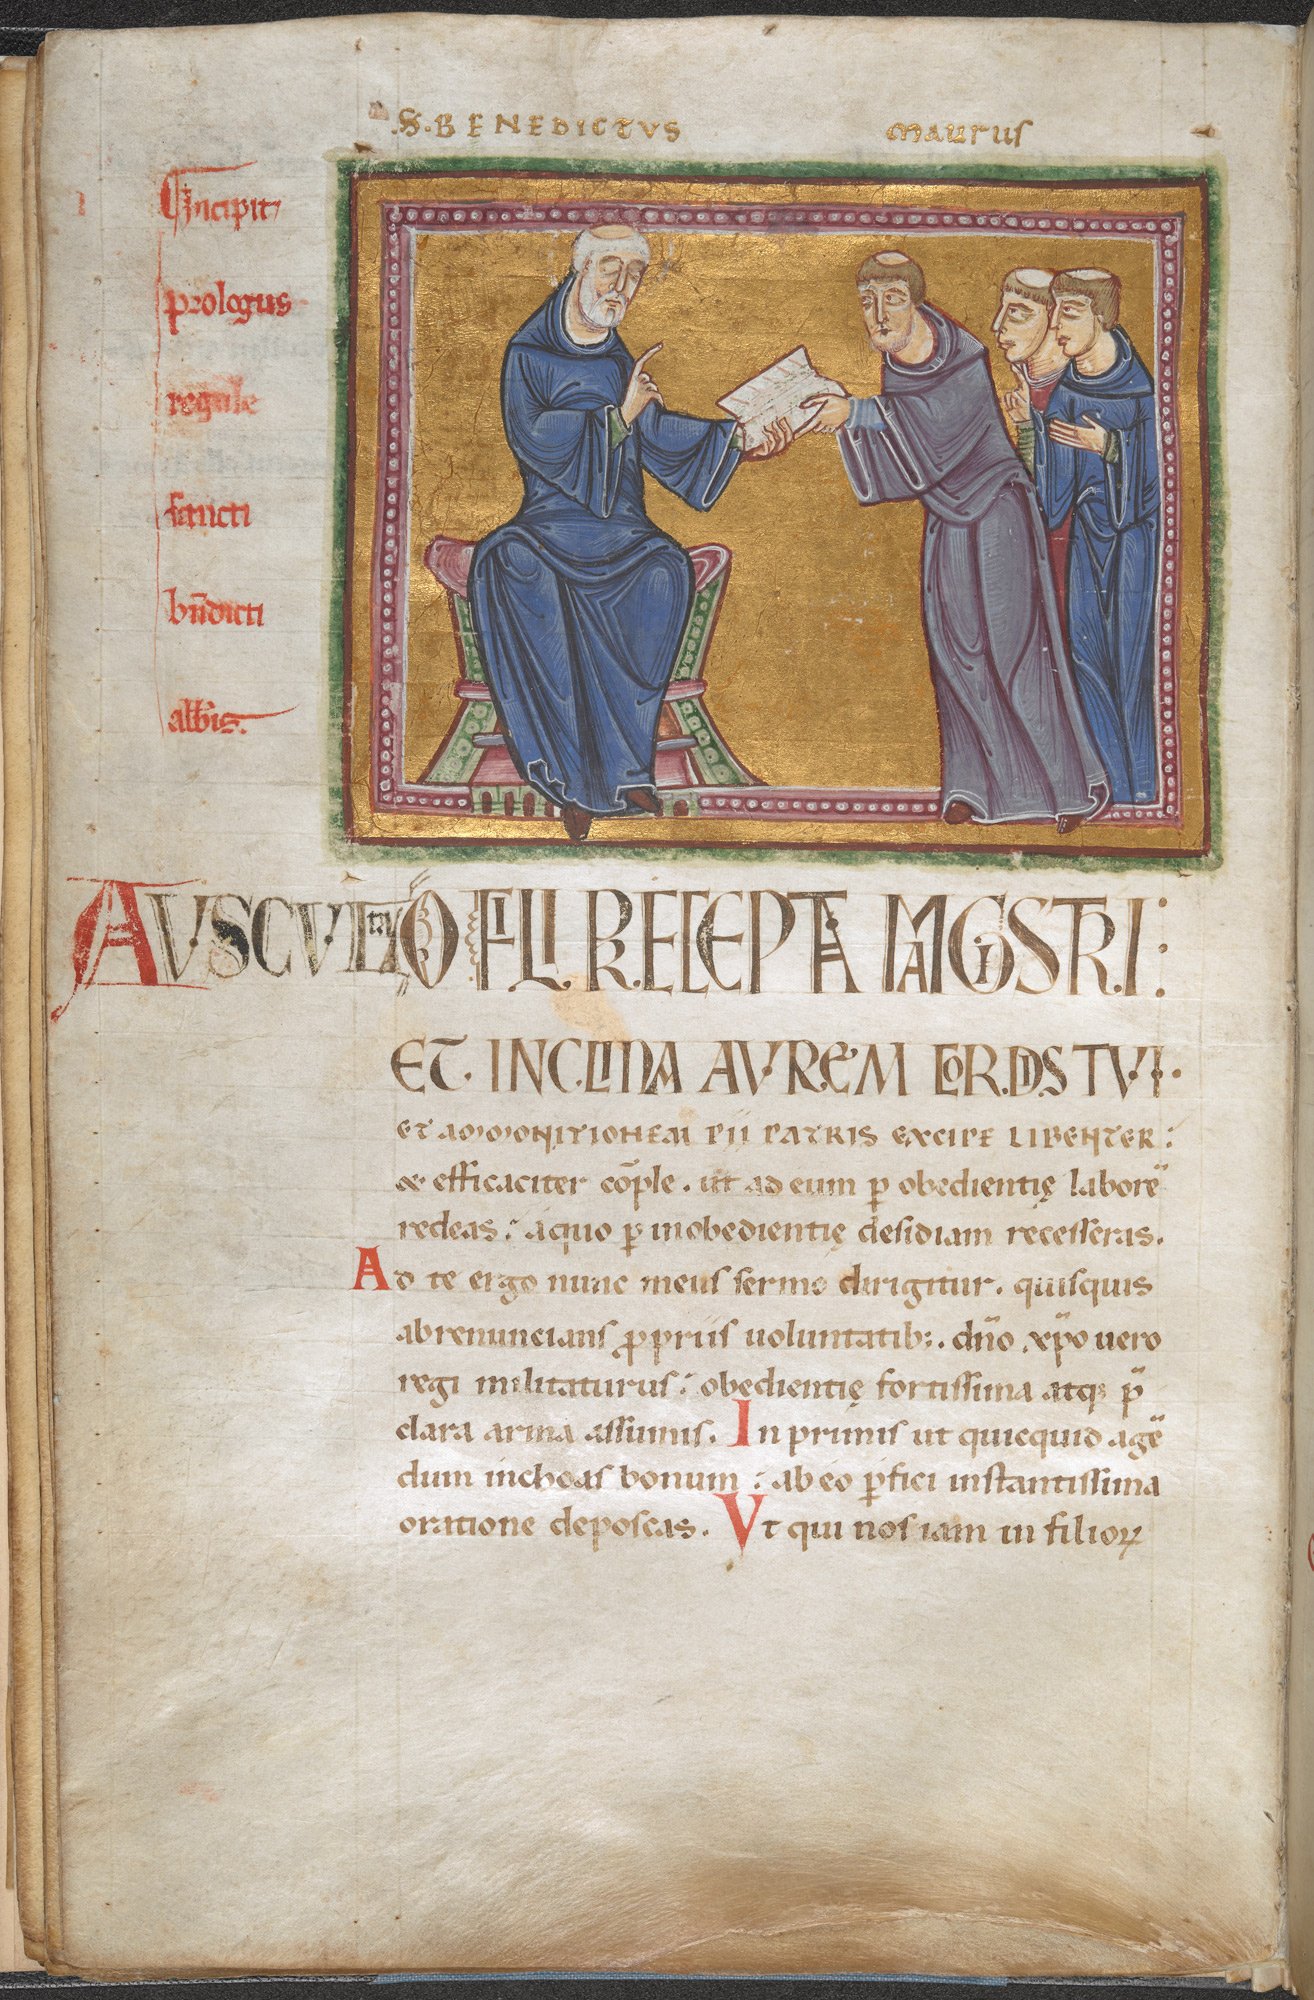 .S. BENEDICTVS
Maurus
Incipit
prologus
regule
sancti
bn̄dicti
abb̄is.
AVSCVLTA O FILI PRECEPTA MAGISTRI:
ET INCLINA AVREM CORDIS TVI.
ET AMMONITIONEM PII PATRIS EXCIPE LIBENTER:
& efficaciter cōple. ut ad eum p̄ obedientię laborē
redeas; a quo p̄ inobedientię desidiam recesseras.
Ad te ergo nunc meus sermo dirigitur. quisquis
abrenuncians ꝓpriis uoluntatib;. dn̄o xp̄o uero
regi militaturus; obedientię fortissima atq; p̄
clara arma assumis. In primis ut quicquid agē
dum inchoas bonum; ab eo p̄fici instantissima
oratione deposcas. Vt qui nos iam in filioꝝ